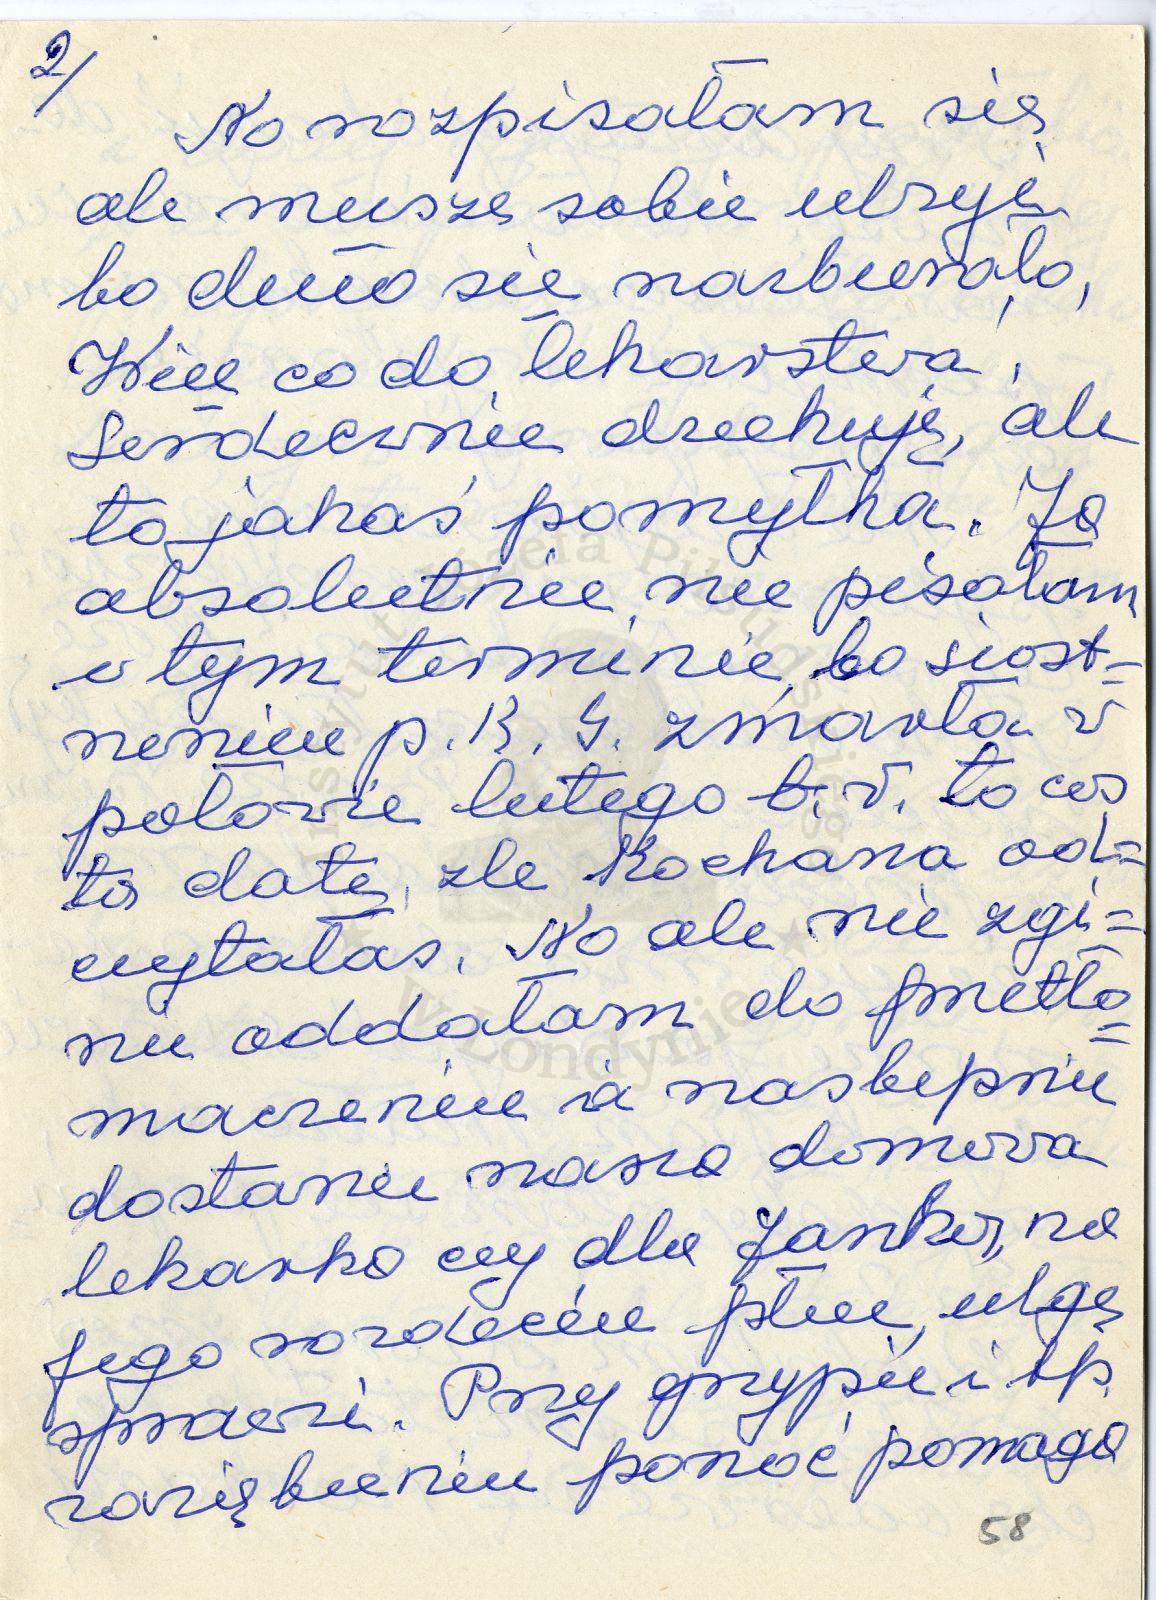 2/
No rozpisałam się
ale muszę sobie ulżyć
bo dużo się nazbierało,
Więc co do lekarstwa,
Serdecznie dziękuję, ale
to jakaś pomyłka. Ja
absolutnie nie pisałam
o tym terminie, bo siost-
rzenica p. K. G. zmarła w
połowie lutego b.r. to coś
to datę, źle Kochana od-
czytałaś. No ale nie zgi-
nie oddałam do przetło-
maczenia i następnie
dostanie nasza domowa
lekarka czy dla Janka, na
jego rozdęcie płuc, ulgę
sprawi. Przy grypie i tp.
zaziębieniu ponoć pomaga
58
Instytut Józefa Piłsudskiego
w Londynie